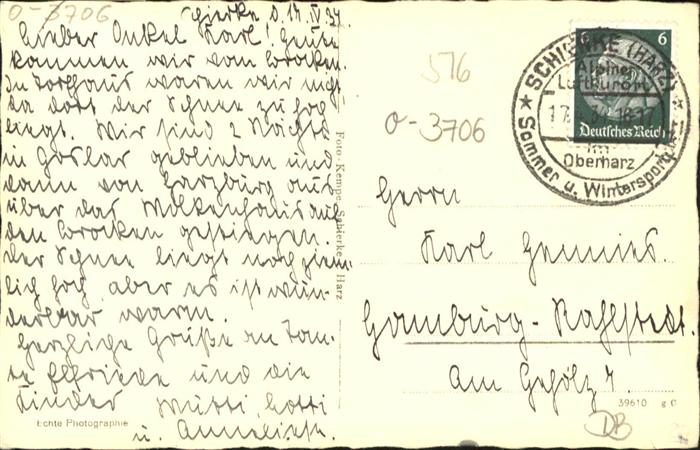 o-3706
Schierke d. 17.IV.34.
Lieber Onkel Karl! Heute
kommen wir vom Brocken.
In Torfhaus waren wir nicht
da dort der Schnee zu hoch
liegt. Wir sind 2 Nächte
in Goslar geblieben und
dann von Harzburg aus
über das Molkenhaus auf
den Brocken gestiegen.
Der Schnee liegt noch ziem-
lich hoch, aber es ist wun-
derbar warm.
Herzliche Grüße an Tan-
te Elfriede und die
Kinder Mutti, Lotti
u. Anneliese.
Echte Photographie
Foto-Kempe, Schierke Harz
516
o-3706
6
Deutsches Reich
SCHIERKE (HARZ)
Alpiner
Luftkurort
17. 34.18-17
im
Oberharz
Sommer u. Wintersport
Herrn
Karl
Hamburg-Rahlstedt.
Am Gehölz 4.
39610
DB